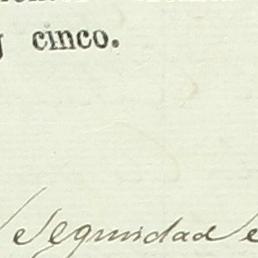 y cinco.
Seguridad e